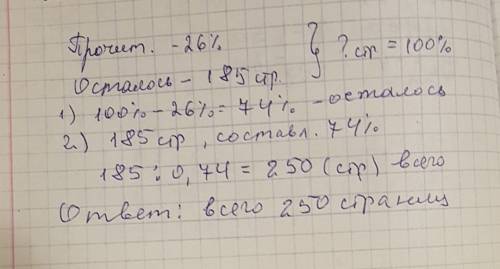 Прочит. - 26% } ? стр = 100%
Осталось - 185 стр.
1) 100% - 26% = 74% - осталось
2) 185 стр, составл. 74%
185 : 0,74 = 250 (стр) всего
Ответ: всего 250 страниц